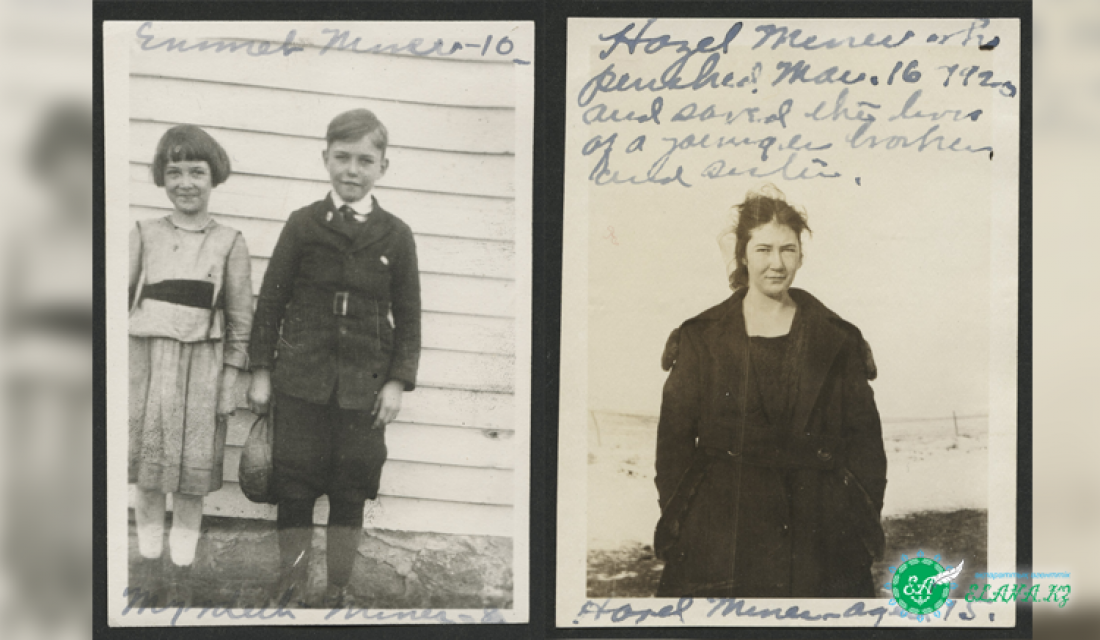 Emmet Miner-10
Myrdith Miner-8
Hazel Miner who
perished Mar. 16 1920
and saved the lives
of a younger brother
and sister.
Hazel Miner-age 15.
ELANA.KZ